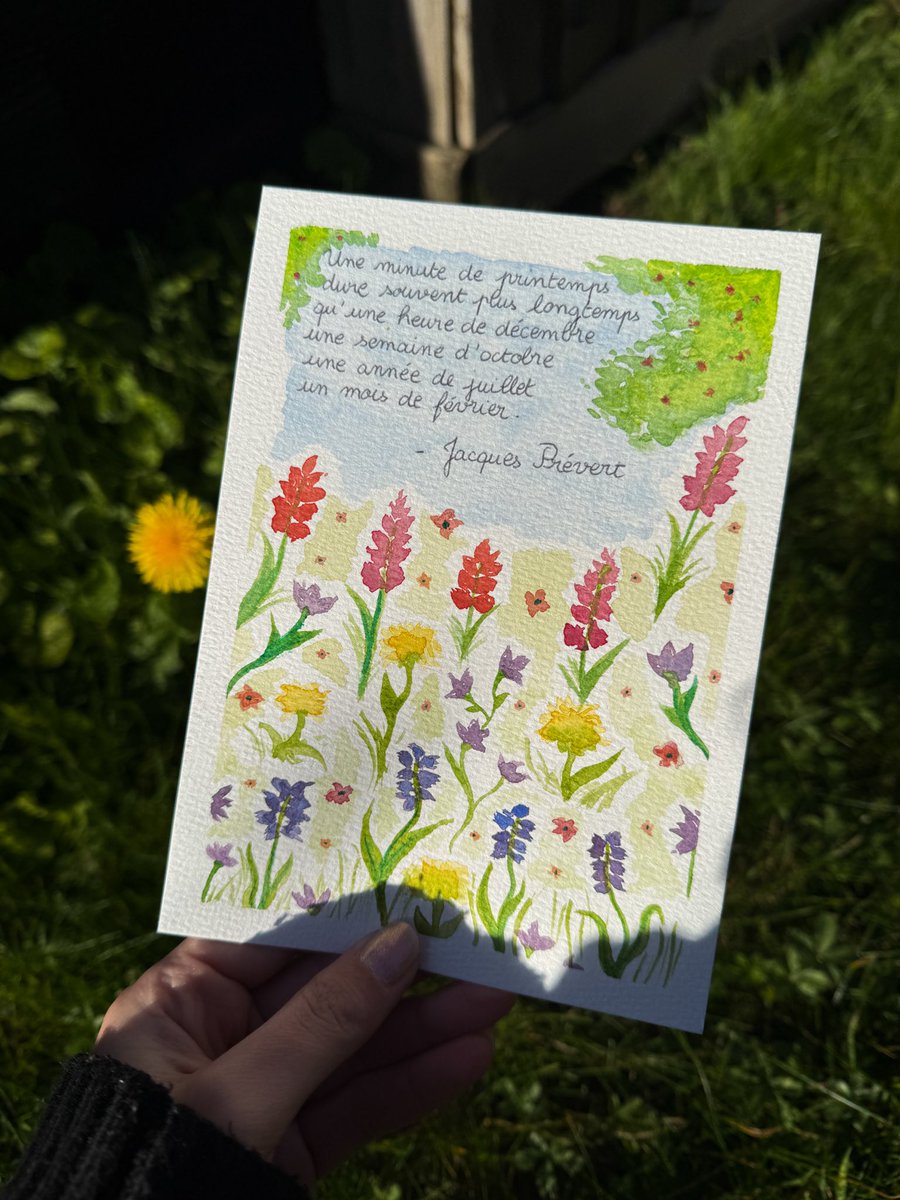 Une minute de printemps
dure souvent plus longtemps
qu'une heure de décembre
une semaine d'octobre
une année de juillet
un mois de février.
- Jacques Prévert